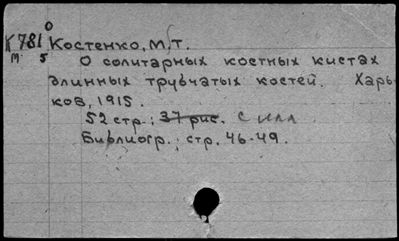 О
К781 Костенко, М. Т.
М 5 О солитарных костных кистах
длинных трубчатых костей. Харь-
ков, 1915.
52 стр.; 37 рис. с илл.
Библиогр.: стр. 46-49.